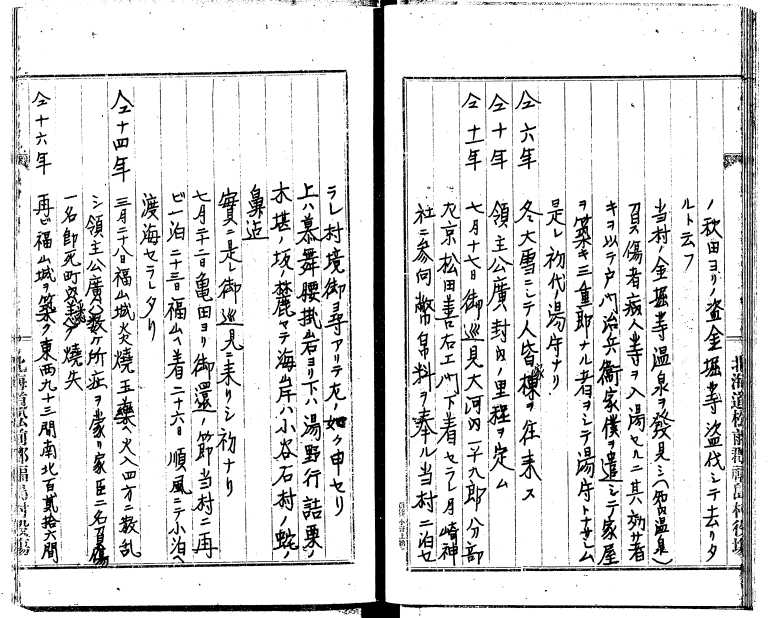 ノ秋田ヨリノ盗金掘等盗伐シテ去リタ
ルト云フ
当村ノ金掘等温泉ヲ發見シ(知内温泉)
負傷者病人等ヲ入湯セルニ其効著
キヲ以テ戸門治兵衞家僕ヲ遣シテ家屋
ヲ築キ三重郎ナル者ヲシテ湯守トナサシム
是レ初代湯守ナリ
仝六年 冬大雪ニシテ人皆棟ヲ往来ス
仝十年 領主公廣封内ノ里程ヲ定ム
仝十一年 七月十七日御巡見大河内一平九郎分部
左京松田善右エ門下着セラレ月崎神
社ニ参向幣帛料ヲ奉ル当村ニ泊セ
北海道松前郡福島村役場
ラレ村境御尋アリテ左ノ如ク申セリ
上ハ慕舞腰掛岩ヨリ下ハ湯野行詰栗ノ
木堪ノ坂ノ麓マテ海岸ハ小谷石村ノ蛇ノ
鼻迠
實ニ是レ御巡見ニ来リシ初ナリ
七月二十二日亀田ヨリ御還ノ節当村ニ再
ビ一泊二十三日福山ヘ着二十六日順風ニテ小泊ヘ
渡海セラレタリ
仝十四年 三月二十八日福山城炎焼玉薬ヘ火入四方ニ散乱
シ領主公廣公数ケ所疵ヲ蒙リ家臣二名負傷
一名即死町家 焼失
仝十六年 再ビ福山城ヲ築ク東西九十三間南北百貳拾六間
北海道松前郡福島村役場